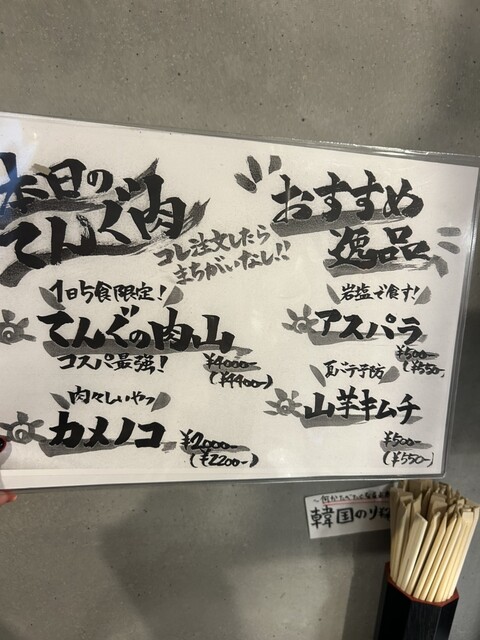 本日の
てんぐ肉
コレ注文したら
まちがいなし!!
1日5食限定!
てんぐの肉山
コスパ最強!
¥4000-
(¥4400-)
肉々しいやつ
カメノコ
¥2000-
(¥2200-)
おすすめ
逸品
岩塩で食す!
アスパラ
¥500-
(¥550-)
夏バテ予防
山芋キムチ
¥500-
(¥550-)
韓国のり